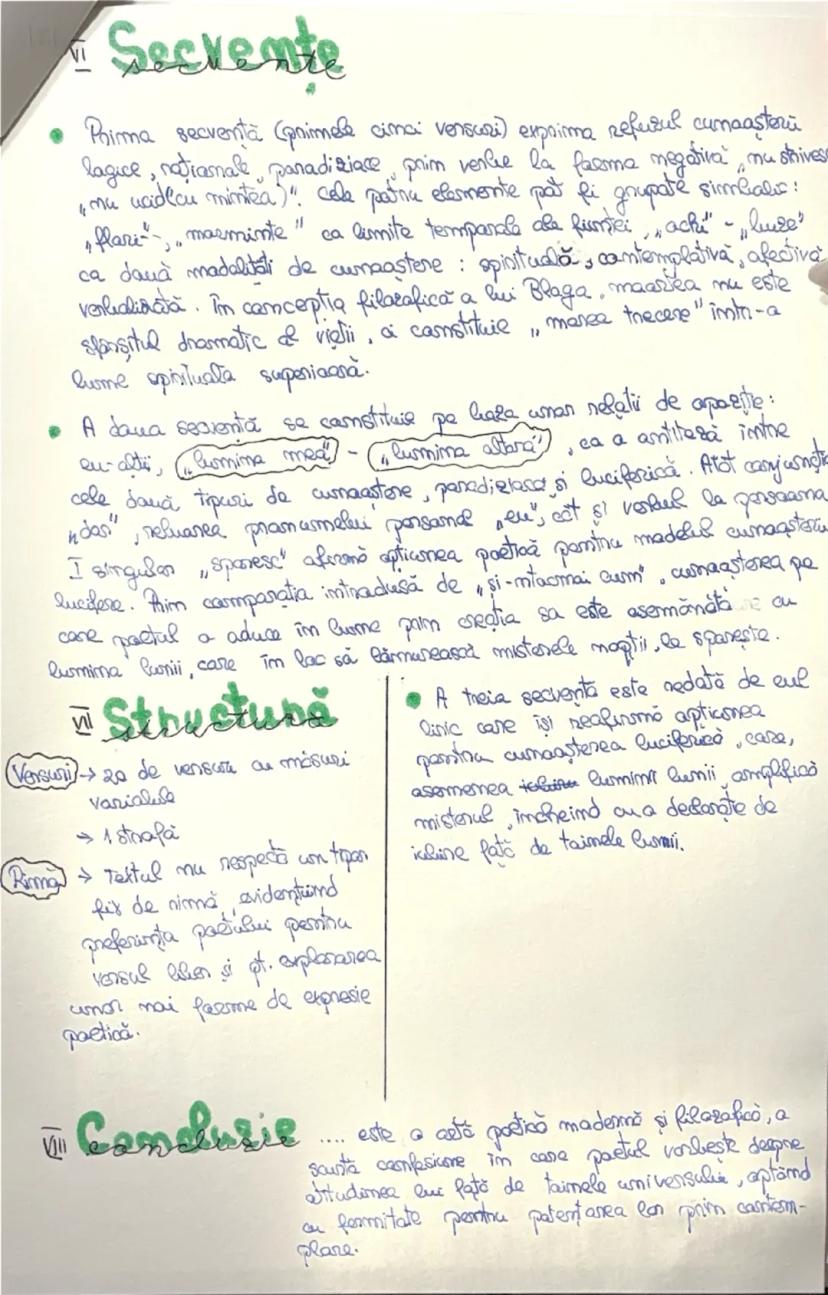 VI Secvențe
secvențe
• Prima secvență (primele cinci versuri) exprima refuzul cunoașterii
logice, raționale, paradiziace, prim verbe la forma negativă „nu strivesc
„nu ucid(cu mintea)". Cele patru elemente pot fi grupate simbolic:
„flori"-, „morminte" ca limite temporale ale ființei, „ochi" - „buze"
ca două modalități de cunoaștere: spirituală, contemplativă, afectivă
verbalizată. În concepția filozofică a lui Blaga, moartea nu este
sfârșitul dramatic al vieții, ci constituie „marea trecere" într-o
lume spirituala superioară.
• A doua secvență se constituie pe baza unor relații de opoziție:
eu-alții, „lumina mea" - „lumina altora", ca o antiteză între
cele două tipuri de cunoaștere, paradiziacă și luciferică. Atât conjuncția
„dar", reluarea pronumelui personal „eu", cât și verbul la persoana
I singular „sporesc" afirmă opțiunea poetică pentru modelul cunoașterii
lucifere. Prim comparația introdusă de „și-ntocmai cum", cunoașterea pe
care poetul o aduce în lume prim creația sa este asemănătă cu
lumina lunii, care în loc să lămurească misterele nopții, le sporește.
VII Structură
structură
Versuri → 20 de versuri cu măsuri
variabile
→ 1 strofă
Rimă → Textul nu respectă un tipar
fix de rimă, evidențiind
preferința poetului pentru
versul liber și pt. explorarea
unor noi forme de expresie
poetică.
• A treia secvență este redată de eul
liric care își reafirmă opțiunea
pentru cunoașterea luciferică, care,
asemenea luminii lunii amplifică
misterul, încheind cu o declarație de
iubire față de tainele lumii.
VIII Concluzie
concluzie
.... este o artă poetică modernă și filozofică, o
scurtă confesiune în care poetul vorbește despre
atitudinea lui față de tainele universului, optând
cu fermitate pentru potențarea lor prim contem-
plare.